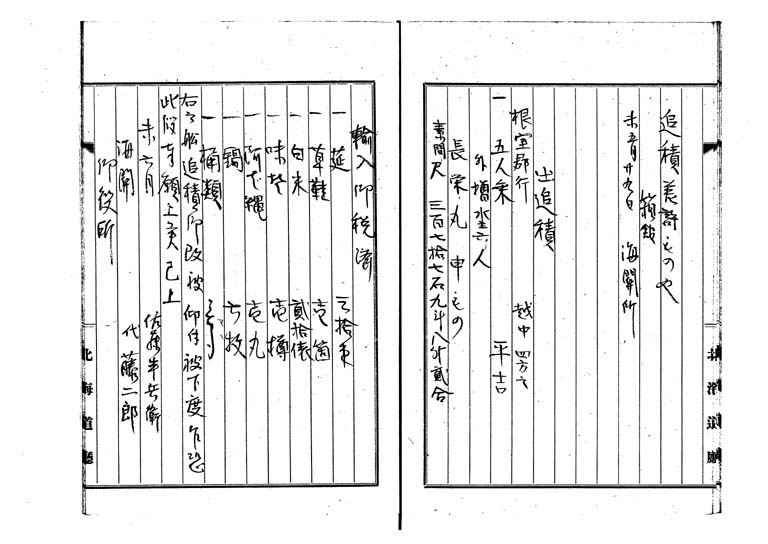 追積差許ものや
箱舘
未五月廿九日 海關所
出追積
根室郡行 越中四方
一 五人乗 平吉
外増水主六人
長栄丸 申もの
素間尺 三百七拾七石九斗八升貳合
北海道廳
輸入御税済
一 莚 三拾束
一 草鞋 壱箇
一 白米 貳拾俵
一 味噌 壱樽
一 縄 壱丸
一 鍋 七枚
一 桶類
右之船追積御改被 仰付被下度乍恐
此段奉願上候已上
未六月 佐藤半兵衛
代 藤二郎
海關
御役所
北海道廳